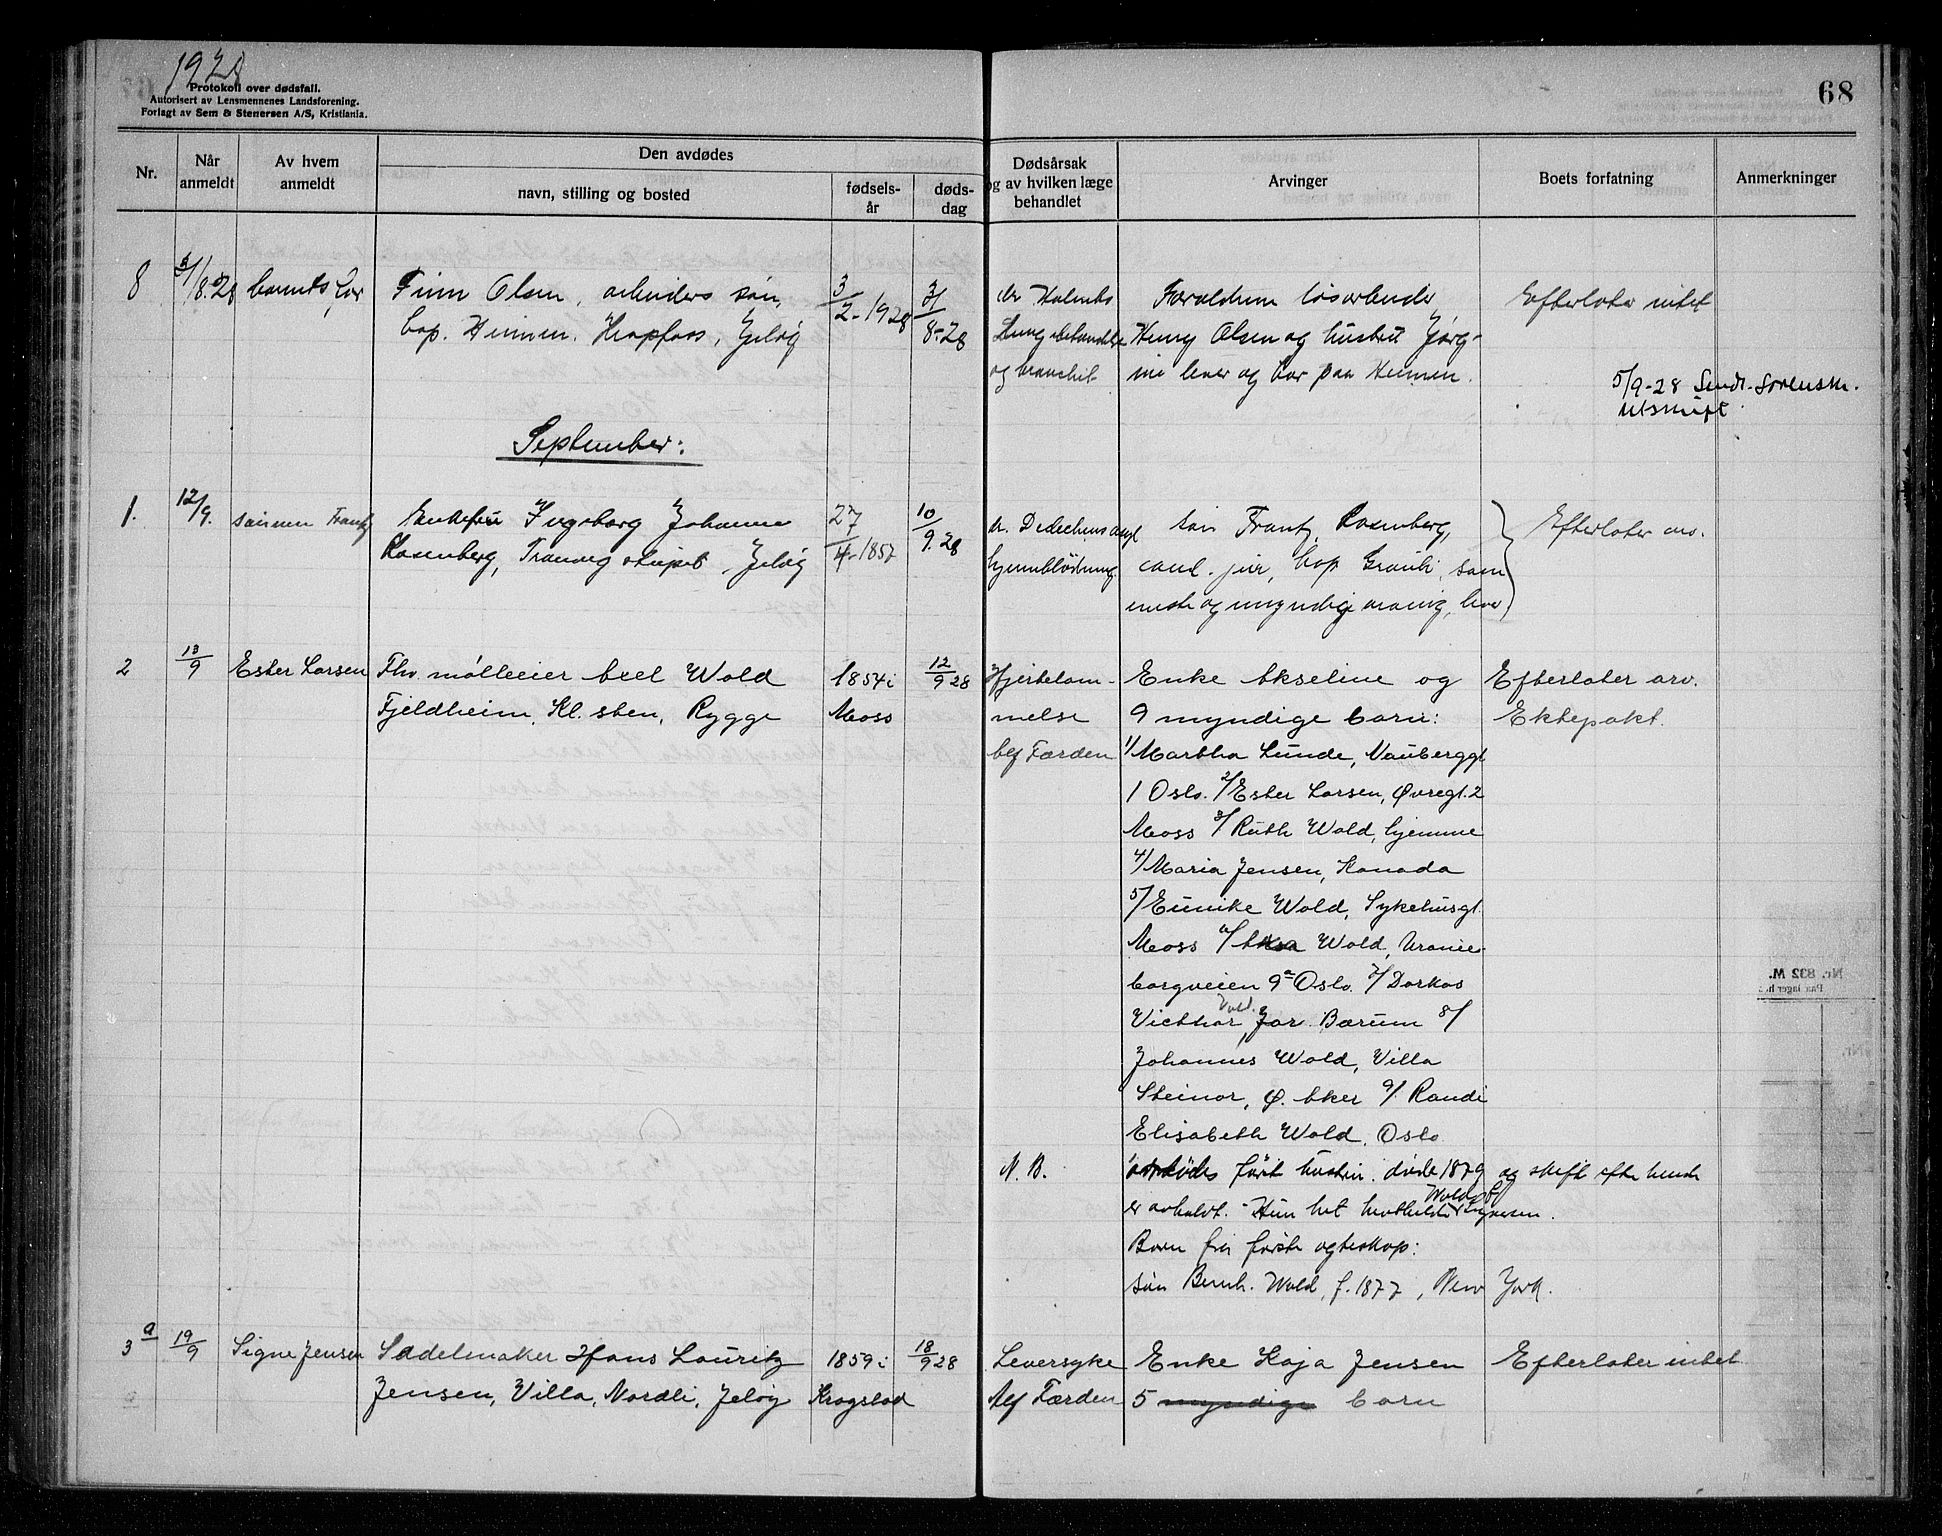 1928
Protokoll over dødsfall.
Autorisert av Lensmennenes Landsforening.
Forlagt av Sem & Stenersen A/S, Kristiania.
68
Nr.
Når anmeldt
Av hvem anmeldt
Den avdødes
navn, stilling og bosted
fødsels-år
døds-dag
Dødsårsak
og av hvilken læge
behandlet
Arvinger
Boets forfatning
Anmerkninger
8 /8.28 barnets far Finn Olsen, arbeiders søn, 3/2-1928 3/8-28 dr Foreldrene løsarbeider Efterlater intet
bop. Heimen, Krapfoss, Jeløy Henry Olsen og hustru Jørg-
og bronchit ine lever og bor paa Heimen.
5/9-28 Sendt Sorenskr.
utskrift
September:
1. 12/9. sønnen Frantz Enkefru Ingeborg Johanne 27/4-1857 10/9.28 dr. Dedechens asyl søn Frantz Rosenberg, Efterlater arv.
Rosenberg, Tranveg, Jeløy hjerneblødning cand. jur, bop. , som
eneste og myndige arving, lever
2 13/9 Ester Larsen Fhv. mølleeier Axel Wold 1854 i 12/9 28 Hjertelam- Enke Akseline og Efterlater arv.
Fjeldheim, Kl. sten, Rygge Moss melse 9 myndige barn: Ektepakt.
Alf Færden 1/ Martha Lunde, Vaubergt
1 Oslo. 2/ Ester Larsen, Øvregt. 2
Moss 3/ Ruth Wold, hjemme
4/ Maria Jensen, Kanada
5/ Eunike Wold, Sykehusgt.
Moss 6/ Aksa Wold, Uranien-
borgveien 9a Oslo. 7/ Dorkas
Victhar Wold, Jar. Bærum 8/
Johannes Wold, Villa
Steinar, Ø. Aker 9/ Randi
Elisabeth Wold, Oslo
N. B. avdødes først hustru døde 1879 og skift efter hende
er avholdt. - Hun het Wold f. .
Barn fra første egteskap:
søn Bernh. Wold, f. 1877, New York.
3 a 19/9 Signe Jensen Sadelmaker Hans Lauritz 1859 i 18/9 28 Leversyke Enke Kaja Jensen Efterlater intet
Jensen, Villa, Nordli, Jeløy Kragstad Alf Færden 5 myndige barn
Nr. 832 M.